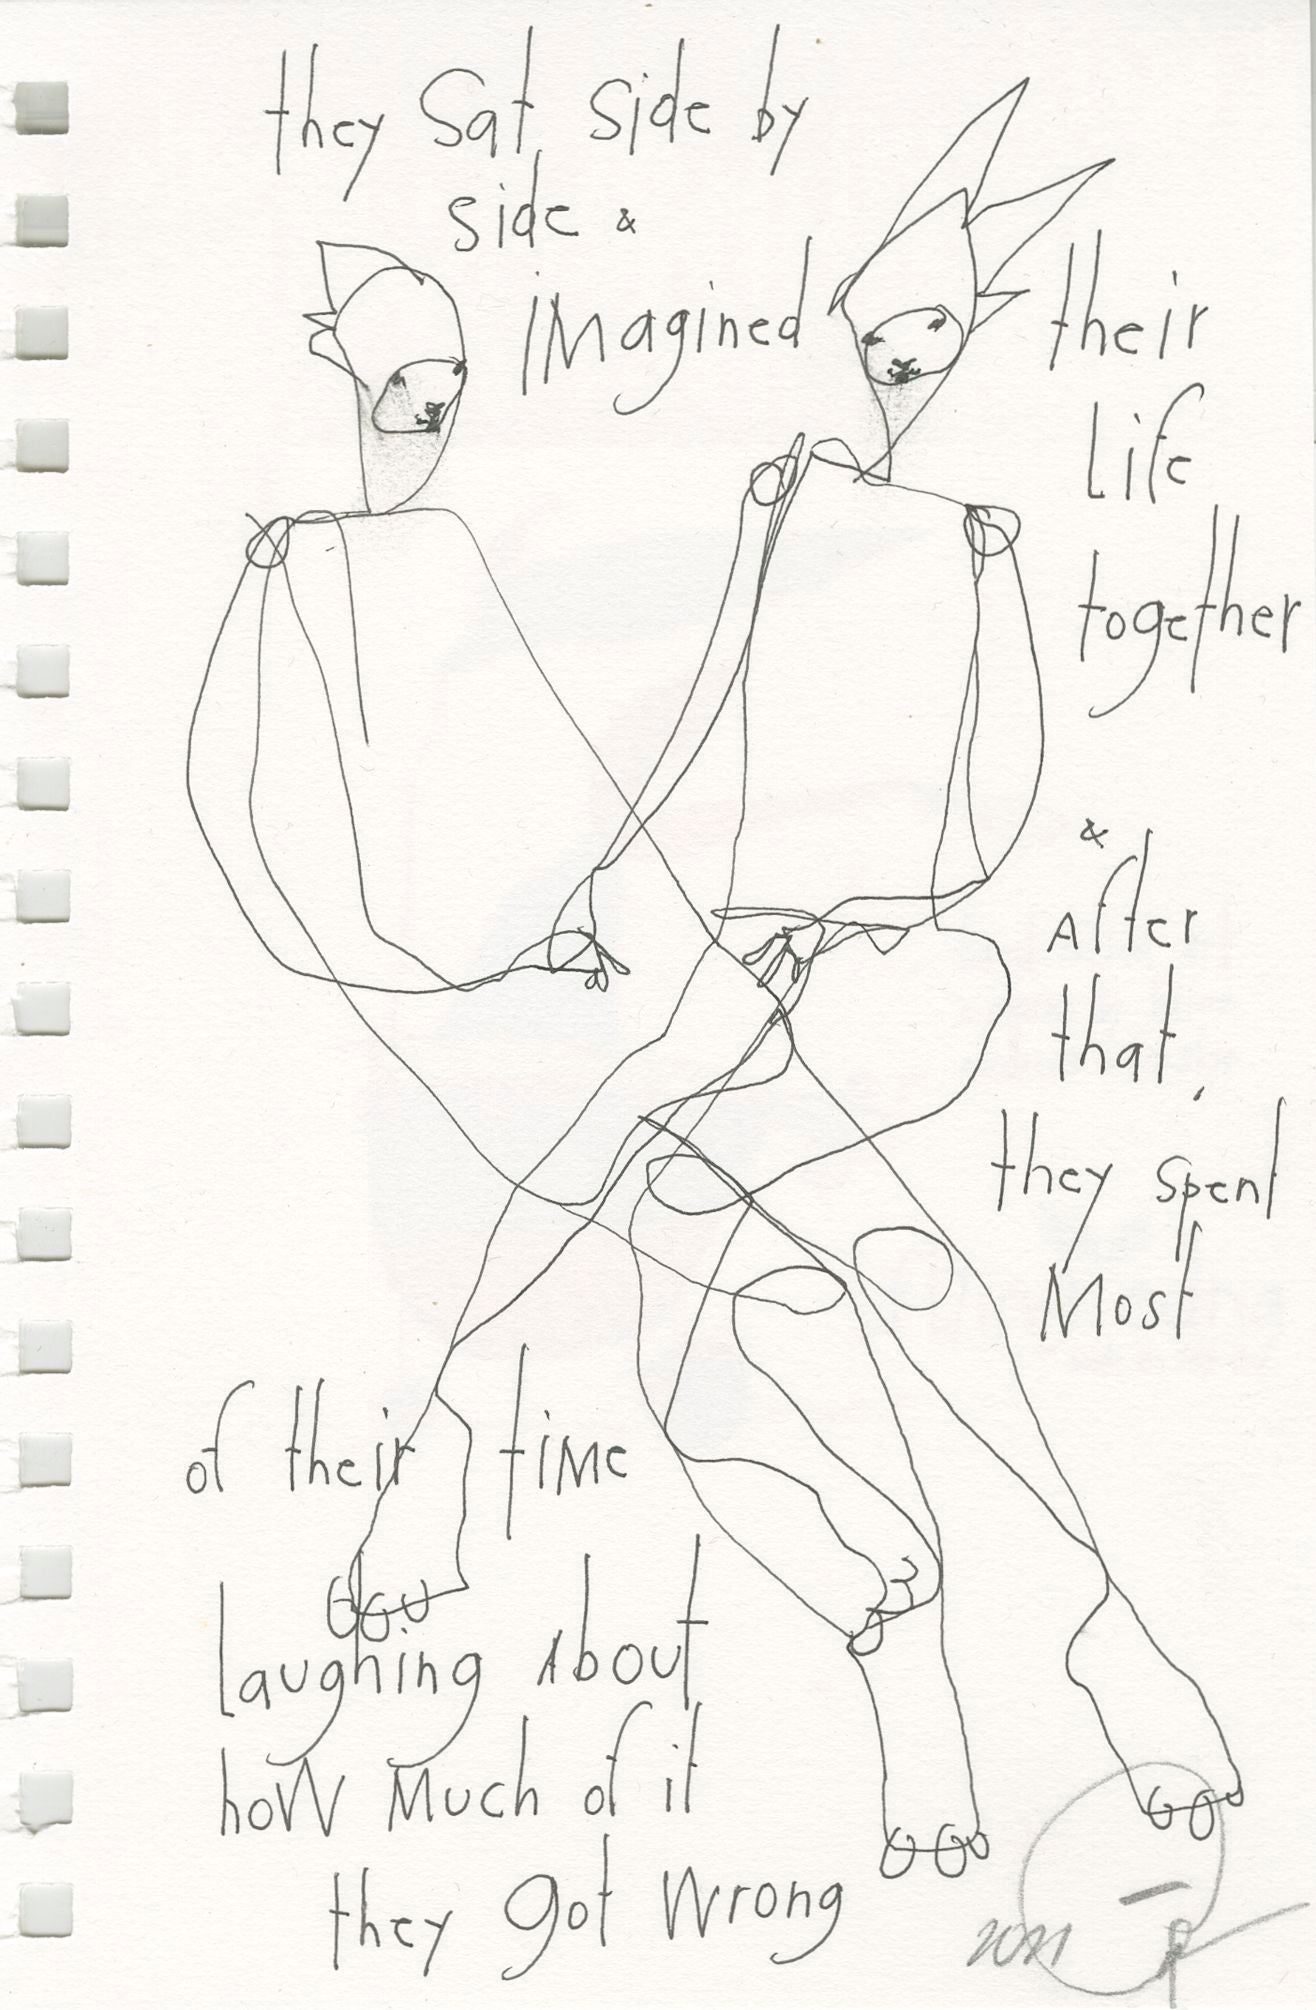 they Sat side by
side &
iMagined their
Life
together
&
After
that,
they spent
Most
of their time
Laughing About
hoW Much of it
they got Wrong
2021